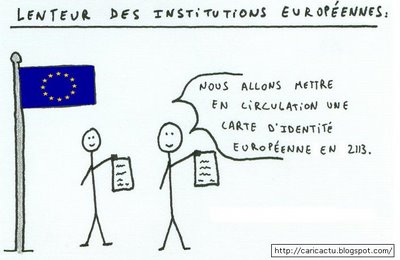 LENTEUR DES INSTITUTIONS EUROPÉENNES:
NOUS ALLONS METTRE
EN CIRCULATION UNE
CARTE D'IDENTITÉ
EUROPÉENNE EN 2113.
http://caricactu.blogspot.com/